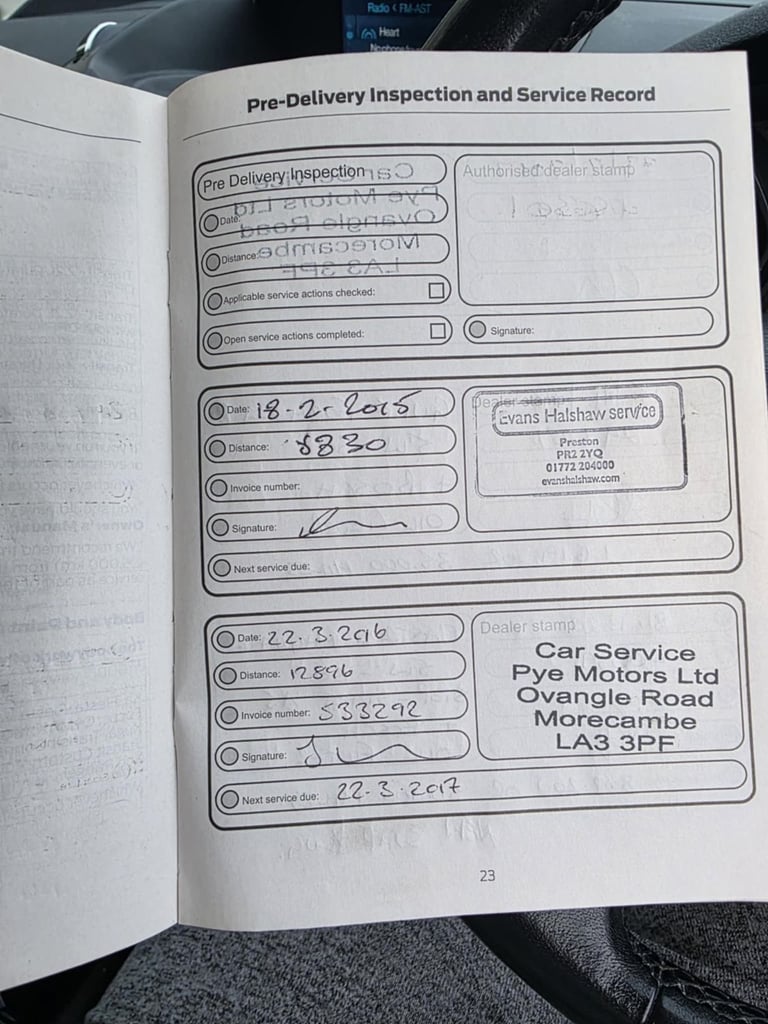 Radio < FM-AST
Heart
Pre-Delivery Inspection and Service Record
Pre Delivery Inspection
Authorised dealer stamp
Date:
Distance:
Applicable service actions checked:
Open service actions completed:
Signature:
Date: 18-2-2015
Distance: 8830
Invoice number:
Signature:
Next service due:
Dealer stamp
Evans Halshaw service
Preston
PR2 2YQ
01772 204000
evanshalshaw.com
Date: 22.3.2016
Distance: 12896
Invoice number: 533292
Signature:
Next service due: 22.3.2017
Dealer stamp
Car Service
Pye Motors Ltd
Ovangle Road
Morecambe
LA3 3PF
23